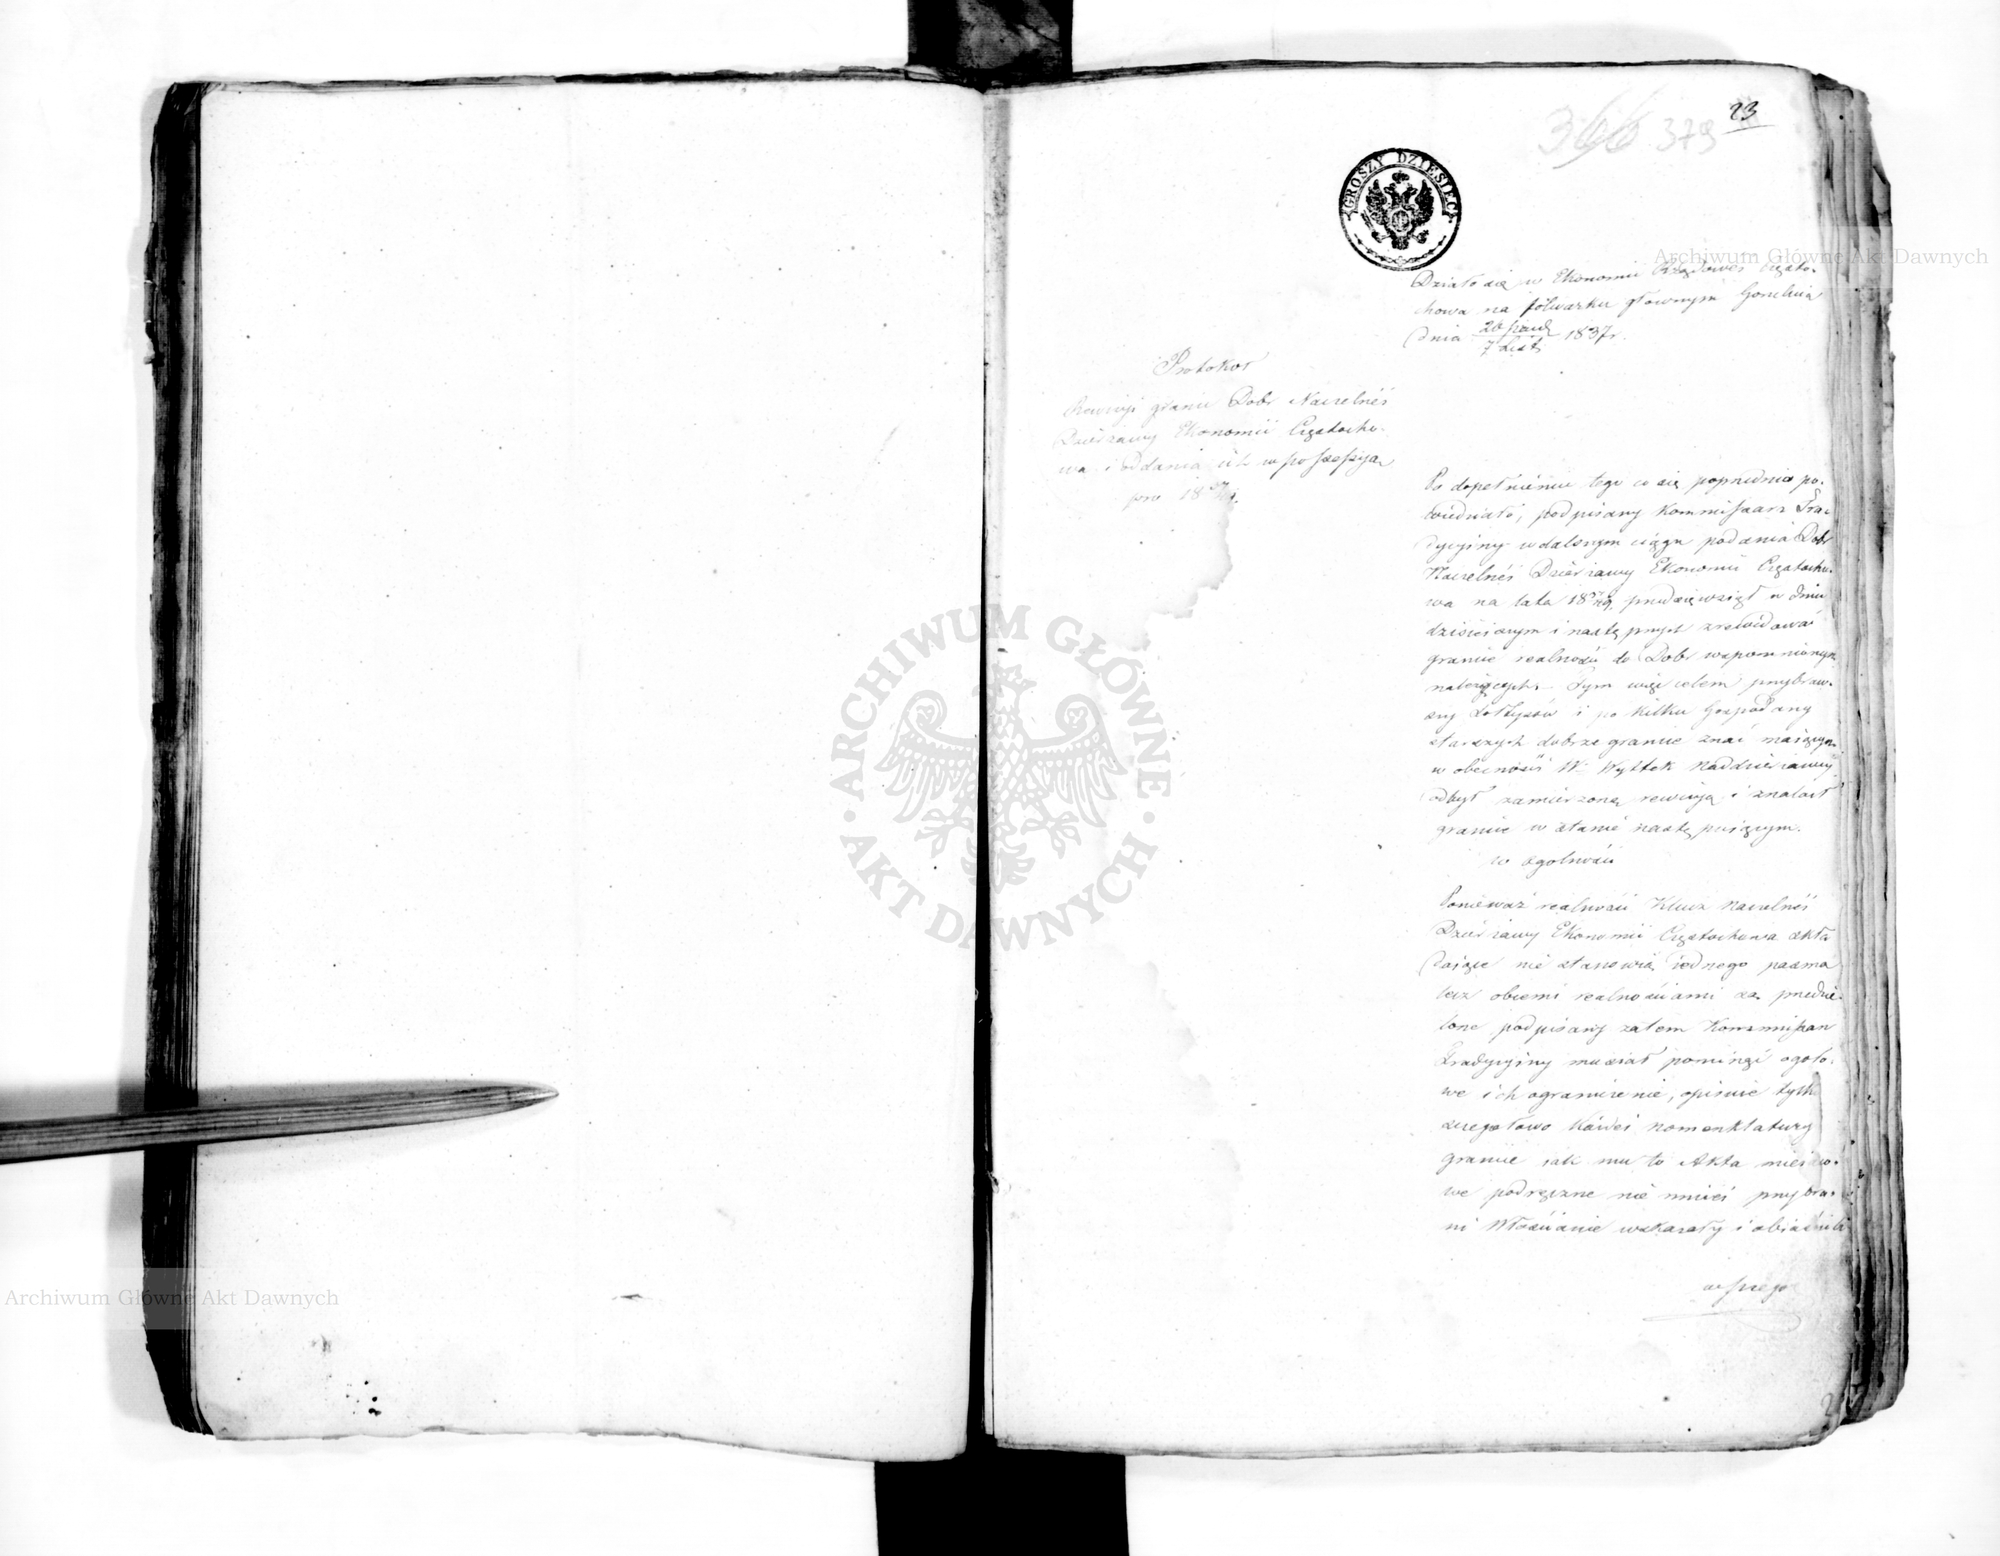 23
366 379
GROSZY DZIESIĘĆ
Działo się w Ekonomii Rządowéi Często-
chowa na folwarku głównym
dnia 26 Paźd/7 List 1837 r.
Protokół
Rewizyi granic Dobr Naczelnéi
Dzierżawy Ekonomii Częstocho-
wa i oddania ich w possessyją
pro 18 37/49.
Po dopełnieniu tego co się poprzednio po-
wiedziało, podpisany Kommissarz Tra-
dycyiny w dalszym ciągu podania Dobr
Naczelnéi Dzierżawy Ekonomii Częstocho-
wa na lata 18 37/49 przedsięwziął w dniu
dzisieiszym i następnych zrewidować
granice realności do Dobr wspomnionych
należących. Tym więc celem przybraw-
szy Sołtysów i po kilku Gospodarzy
starszych dobrze granice znać maiących
w obecności W. Wyttek Naddzierżawcy
odbył zamierzoną rewizyą i znalazł
granice w stanie następuiącym.
w ogolności
Ponieważ realności Klucz Naczelnéi
Dzierżawy Ekonomii Częstochowa skła
daiące nie stanowią iednego pasma
lecz obcemi realnościami są przedzie-
lone podpisany zatem Kommissarz
Tradycyiny musiał pominąć ogoło-
we ich ograniczenie, opisuie tylko
szczegołowo każdéi nomenklatury
granice iak mu to Akta mieisco-
we podręczne nie mniéi przybra-
ni Włościanie wskazały i obiaśnili
Archiwum Główne Akt Dawnych
ARCHIWUM GŁÓWNE AKT DAWNYCH
Archiwum Główne Akt Dawnych